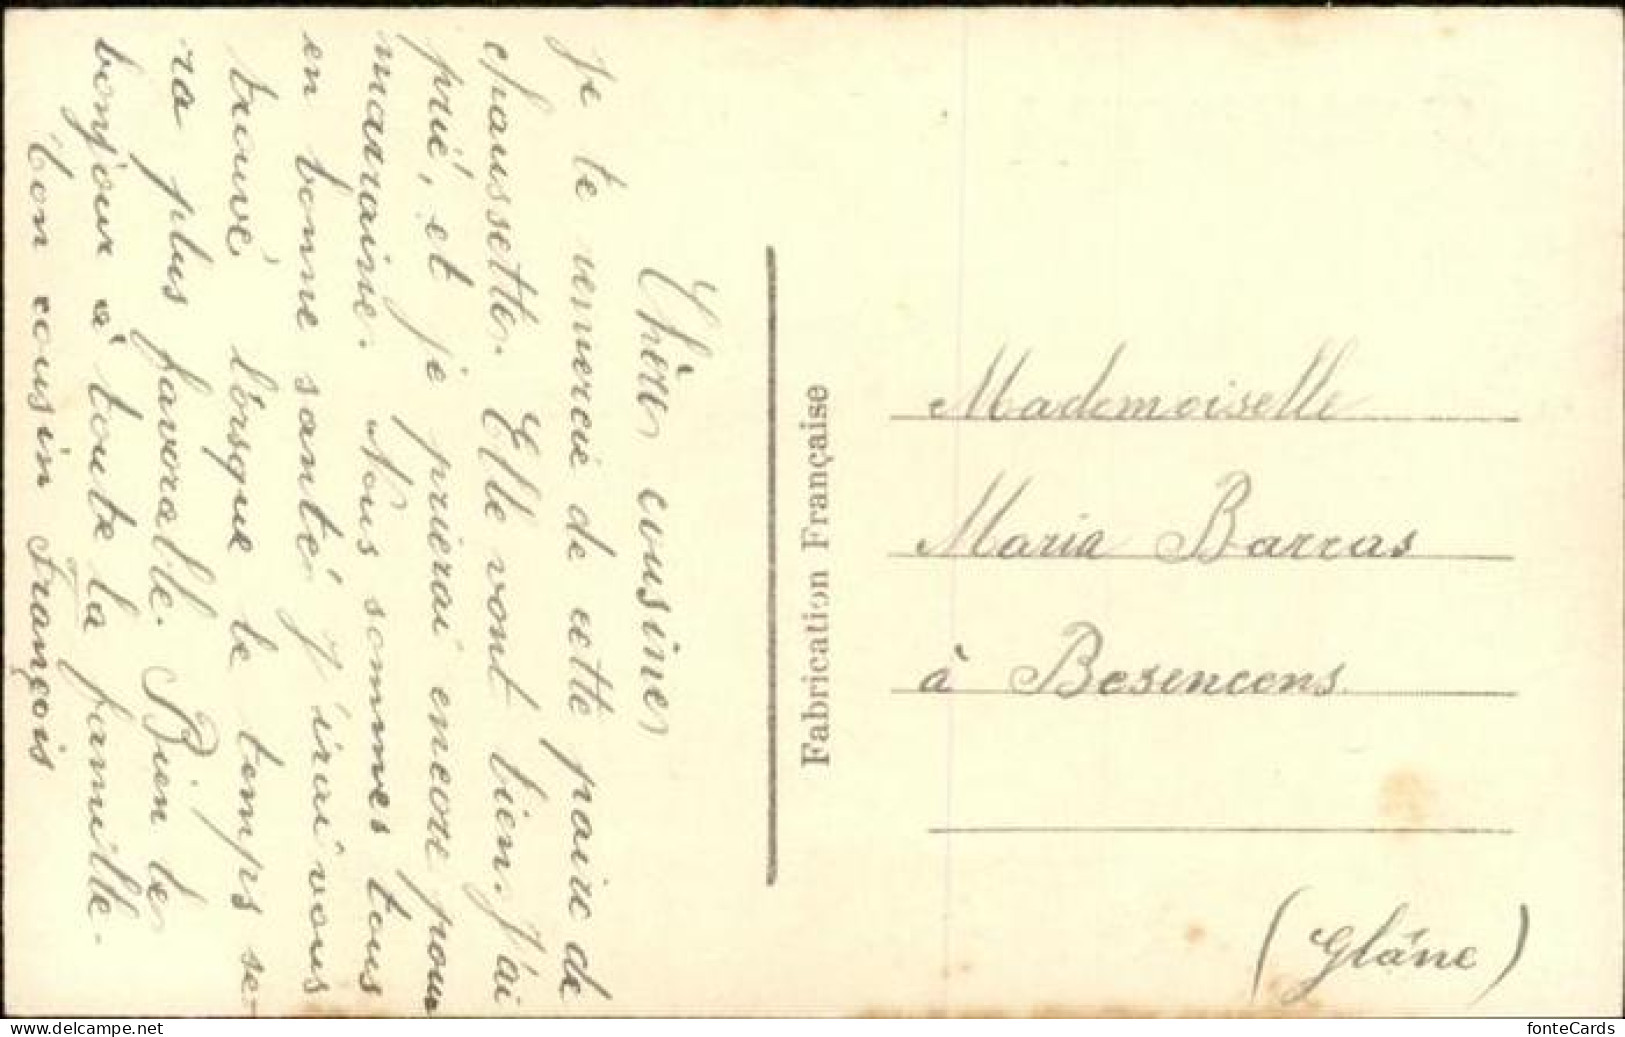 Chère cousine
Je te remercie de cette paire de
chaussette. Elle vont bien. J'ai
prié, et je prierai encore pour
marraine. Nous sommes tous
en bonne santé j'irai vous
trouvé, lorsque le temps se-
ra plus favorable. Bien le
bonjour à toute la famille.
ton cousin François
Fabrication Française
Mademoiselle
Maria Barras
à Besencens
(Glâne)
www.delcampe.net
fonteCards